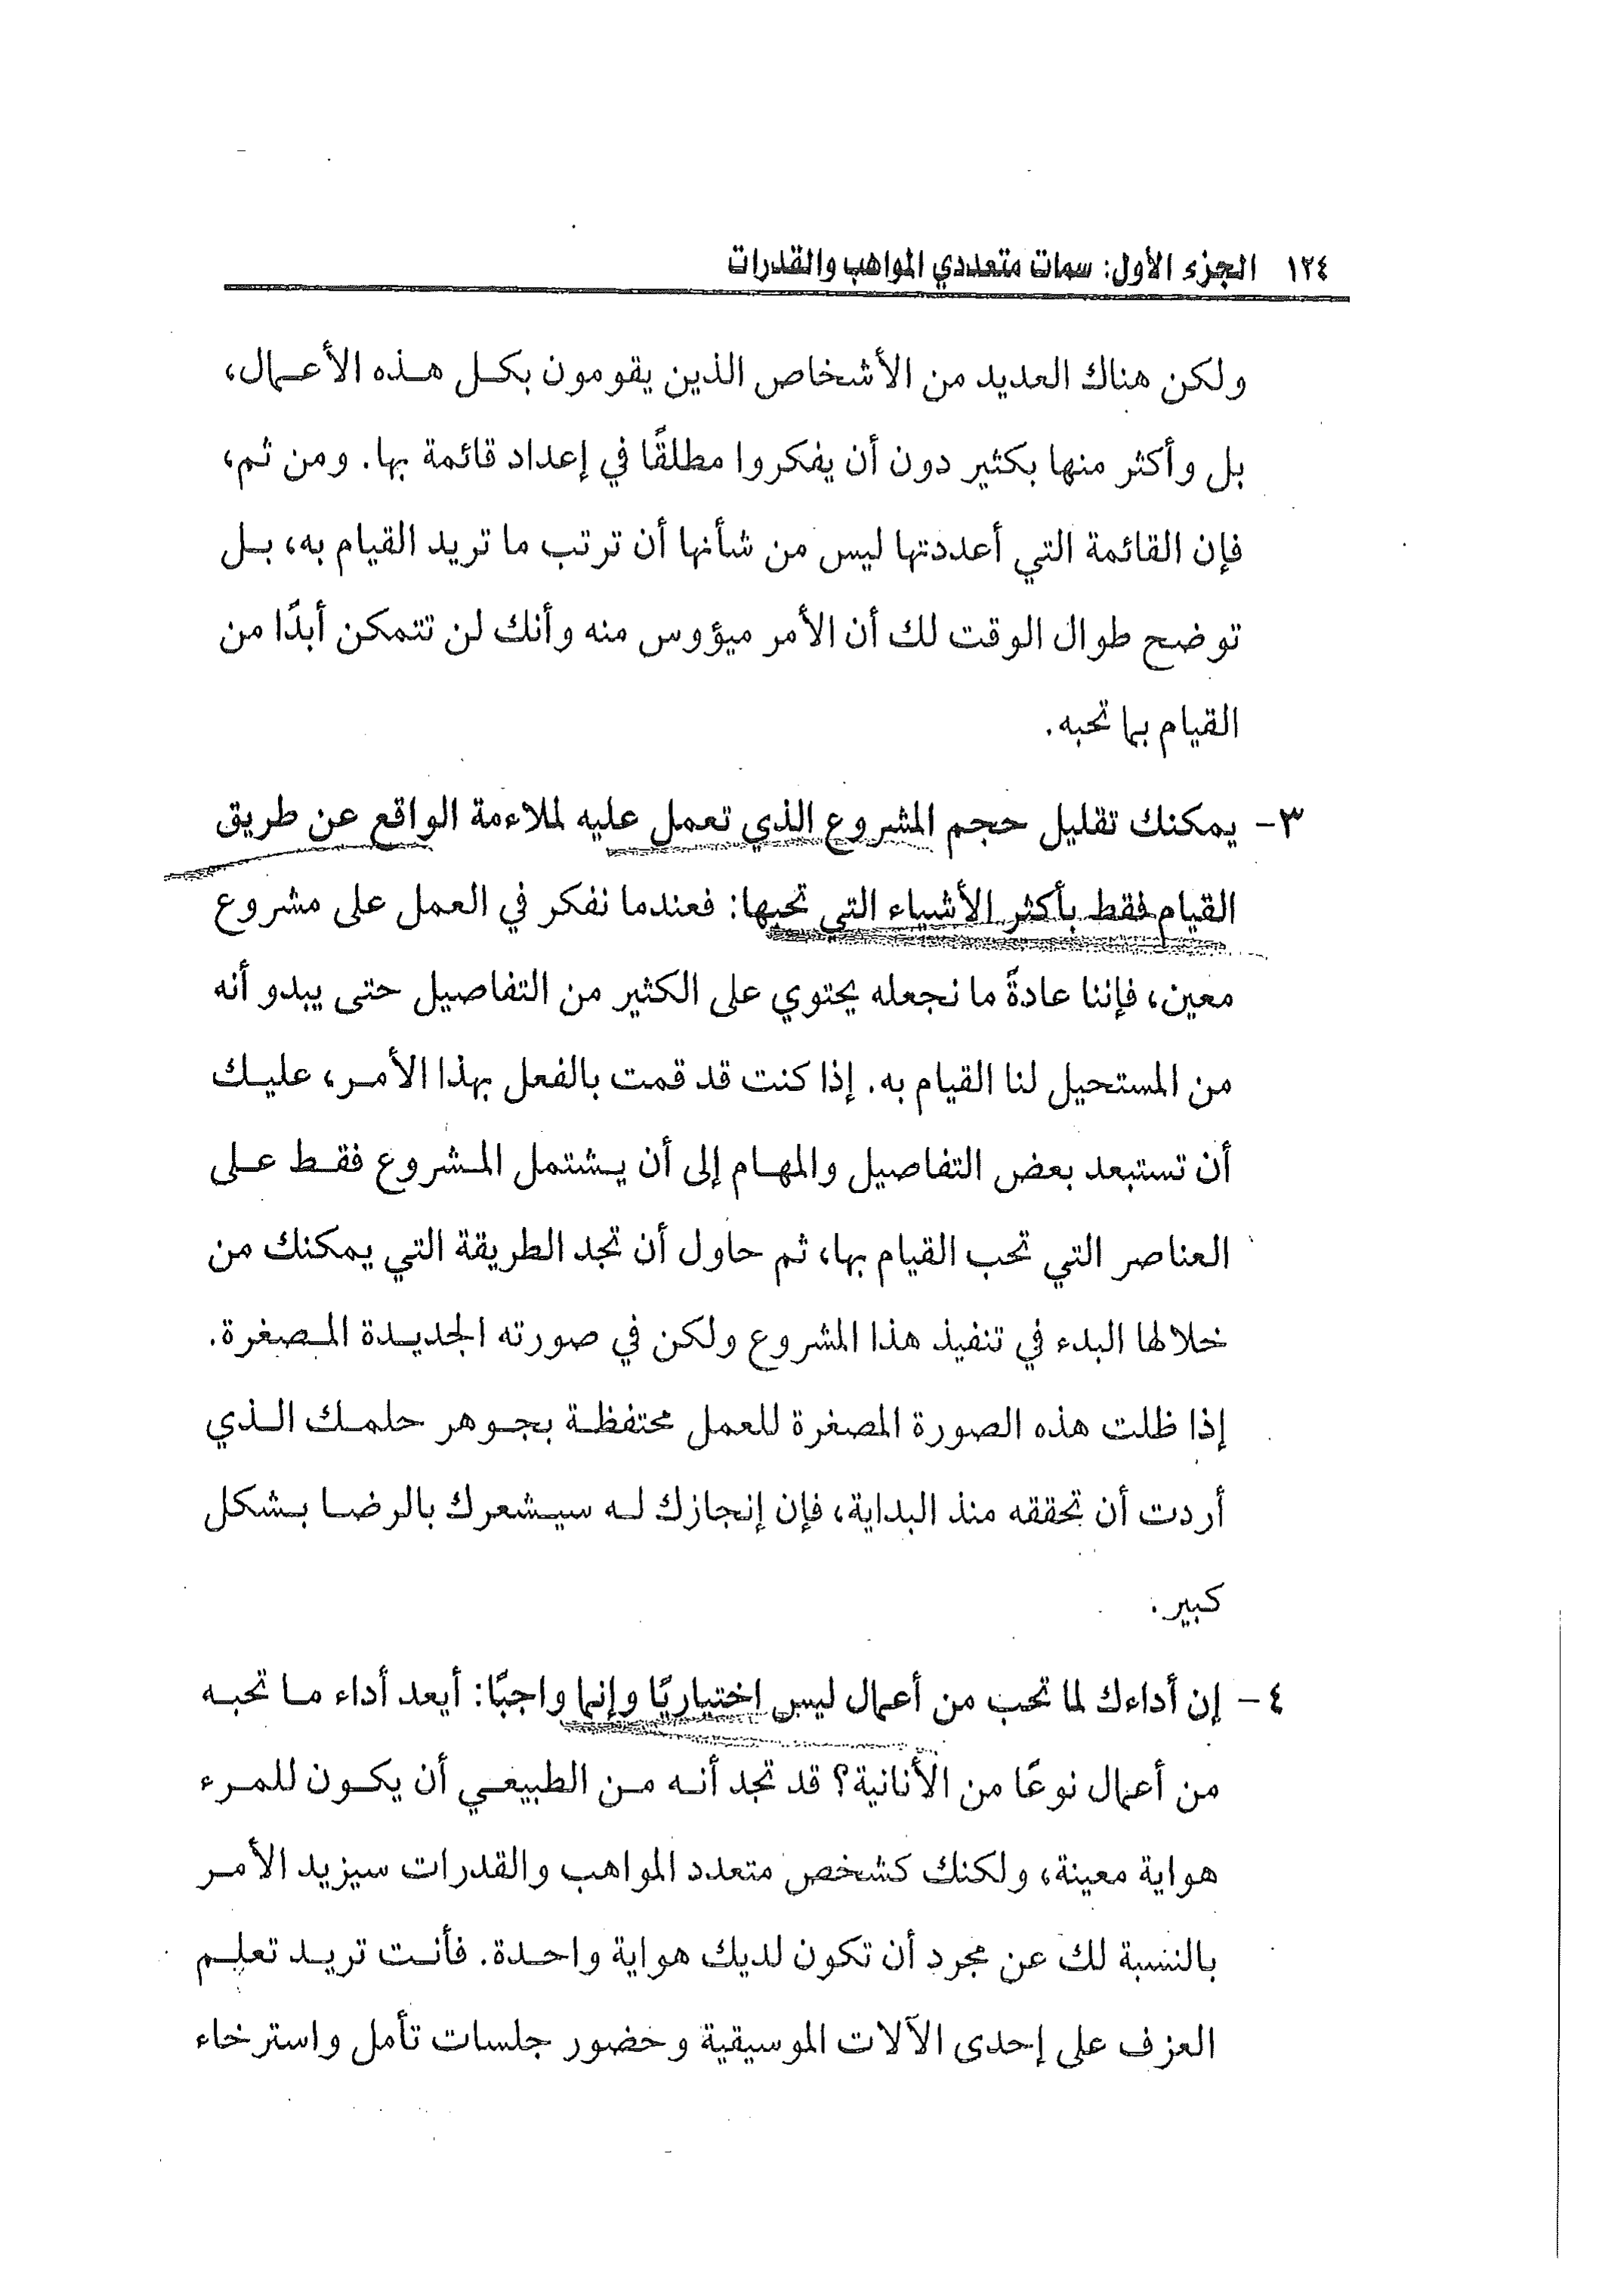 ١٢٤ الجزء الأول: سمات متعددي المواهب والقدرات
ولكن هناك العديد من الأشخاص الذين يقومون بكل هذه الأعمال،
بل وأكثر منها بكثير دون أن يفكروا مطلقًا في إعداد قائمة بها. ومن ثم،
فإن القائمة التي أعددتها ليس من شأنها أن ترتب ما تريد القيام به، بل
توضح طوال الوقت لك أن الأمر ميؤوس منه وأنك لن تتمكن أبدًا من
القيام بما تحبه.
٣- يمكنك تقليل حجم المشروع الذي تعمل عليه لملاءمة الواقع عن طريق
القيام فقط بأكثر الأشياء التي تحبها: فعندما نفكر في العمل على مشروع
معين، فإننا عادةً ما نجعله يحتوي على الكثير من التفاصيل حتى يبدو أنه
من المستحيل لنا القيام به. إذا كنت قد قمت بالفعل بهذا الأمر، عليك
أن تستبعد بعض التفاصيل والمهام إلى أن يشتمل المشروع فقط على
العناصر التي تحب القيام بها، ثم حاول أن تجد الطريقة التي يمكنك من
خلالها البدء في تنفيذ هذا المشروع ولكن في صورته الجديدة المصغرة.
إذا ظلت هذه الصورة المصغرة للعمل محتفظة بجوهر حلمك الذي
أردت أن تحققه منذ البداية، فإن إنجازك له سيشعرك بالرضا بشكل
كبير.
٤- إن أداءك لما تحب من أعمال ليس اختياريًا وإنما واجبًا: أيعد أداء ما تحبه
من أعمال نوعًا من الأنانية؟ قد تجد أنه من الطبيعي أن يكون للمرء
هواية معينة، ولكنك كشخص متعدد المواهب والقدرات سيزيد الأمر
بالنسبة لك عن مجرد أن تكون لديك هواية واحدة. فأنت تريد تعلم
العزف على إحدى الآلات الموسيقية وحضور جلسات تأمل واسترخاء